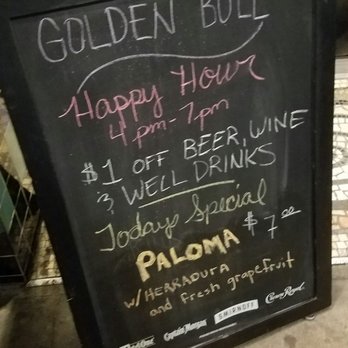 GOLDEN BULL
Happy Hour
4pm-7pm
$1 OFF BEER, WINE
& WELL DRINKS
Todays Special
PALOMA $7.00
W/HERRADURA
and fresh grapefruit
Captain Morgan SMIRNOFF Crown Royal